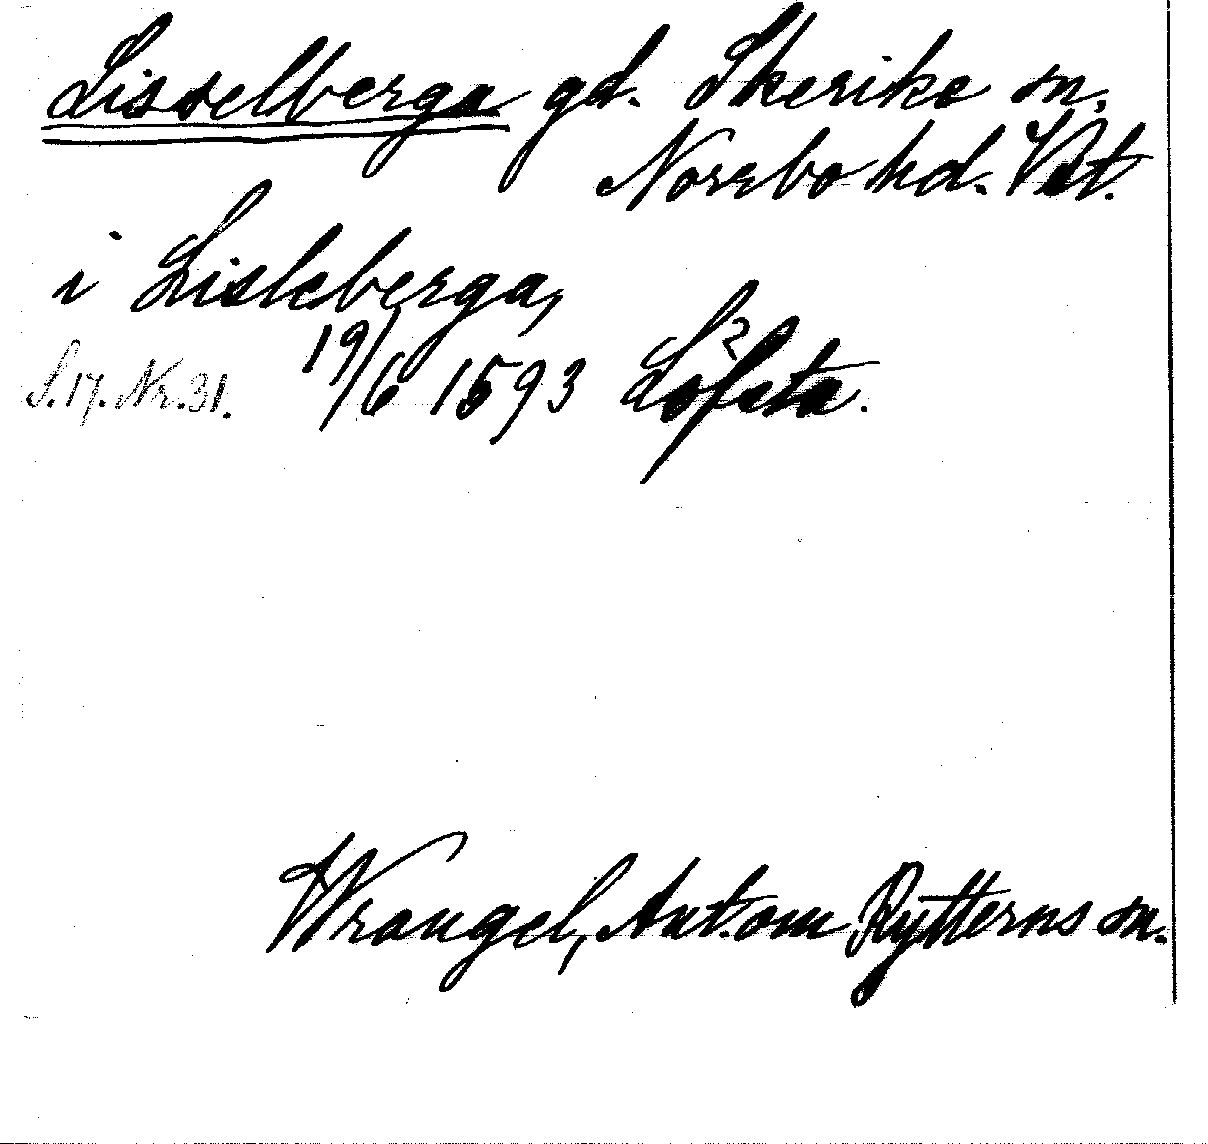 Lisselberga gd. Skerike sn.
Norrbo hd. Vst.
i Lisleberga,
S.17. Nr.31. 19/6 1593 Löfsta.
Wrangel, Ant. om Rytterns sn.